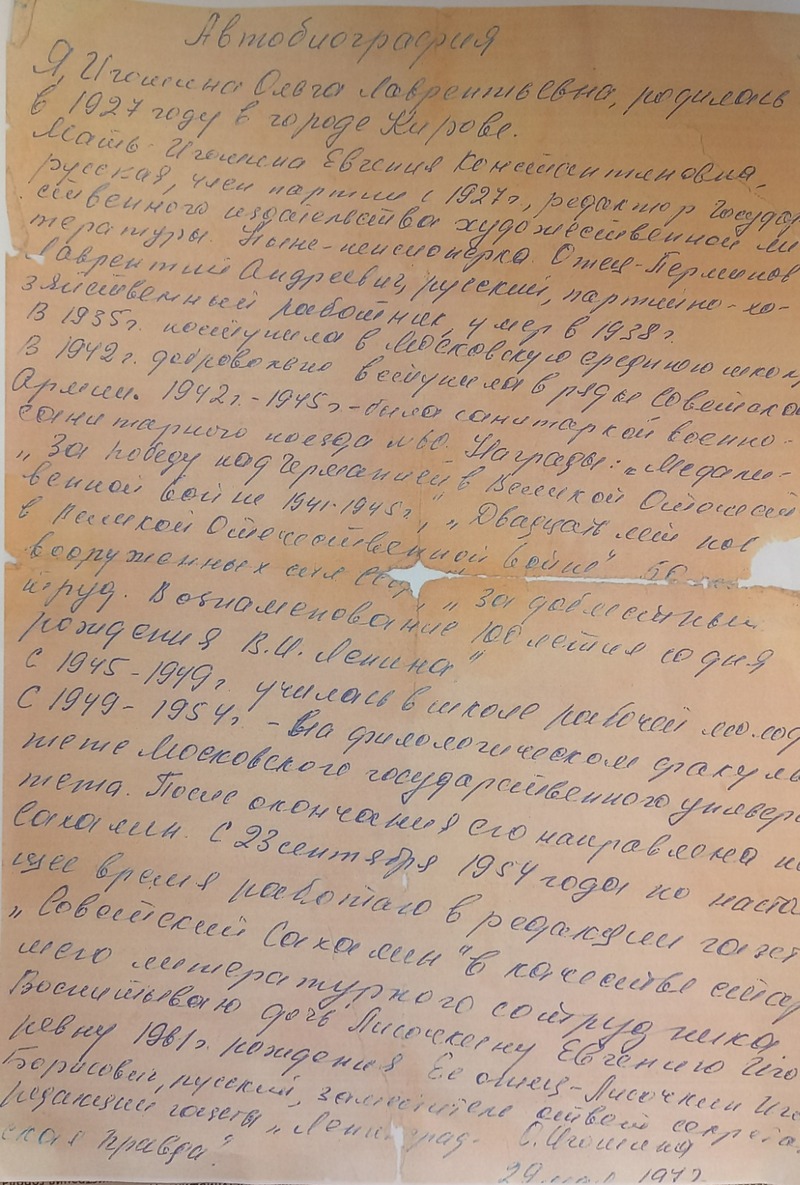 Автобиография
Я, Игошина Ольга Лаврентьевна, родилась
в 1927 году в городе Кирове.
Мать - Игошина Евгения Константиновна,
русская, член партии с 1927 г., редактор Государ
ственного издательства художественной ли
тературы. Ныне - пенсионерка. Отец - Перминов
Лаврентий Андреевич, русский, партийно-хо-
зяйственный работник, умер в 1938 г.
В 1935 г. поступила в Московскую среднюю школу
В 1942 г. добровольно вступила в ряды Советской
Армии. 1942 г. - 1945 г. - была санитаркой военно-
санитарного поезда МВО. Награды: „Медали -
„За победу над Германией в Великой Отечест
венной войне 1941-1945 г.", „Двадцать лет поб
в Великой Отечественной войне" 50 лет
вооруженных сил СССР, „За доблестный
труд. В ознаменование 100 летия со дня
рождения В.И. Ленина"
С 1945 - 1949 г. училась в школе рабочей молод
С 1949 - 1954 г. - на филологическом факуль
тете Московского государственного универс
тета. После окончания его направлена на
Сахалин. С 23 сентября 1954 года по насто
щее время работаю в редакции газет
„Советский Сахалин" в качестве стар
шего литературного сотрудника
Воспитываю дочь Лисочкину Евгению Иго
ревну 1961 г. рождения. Ее отец - Лисочкин Иго
Борисович, русский, заместитель ответ секрета
редакции газеты „Ленинград-
ская правда". О. Игошина
29